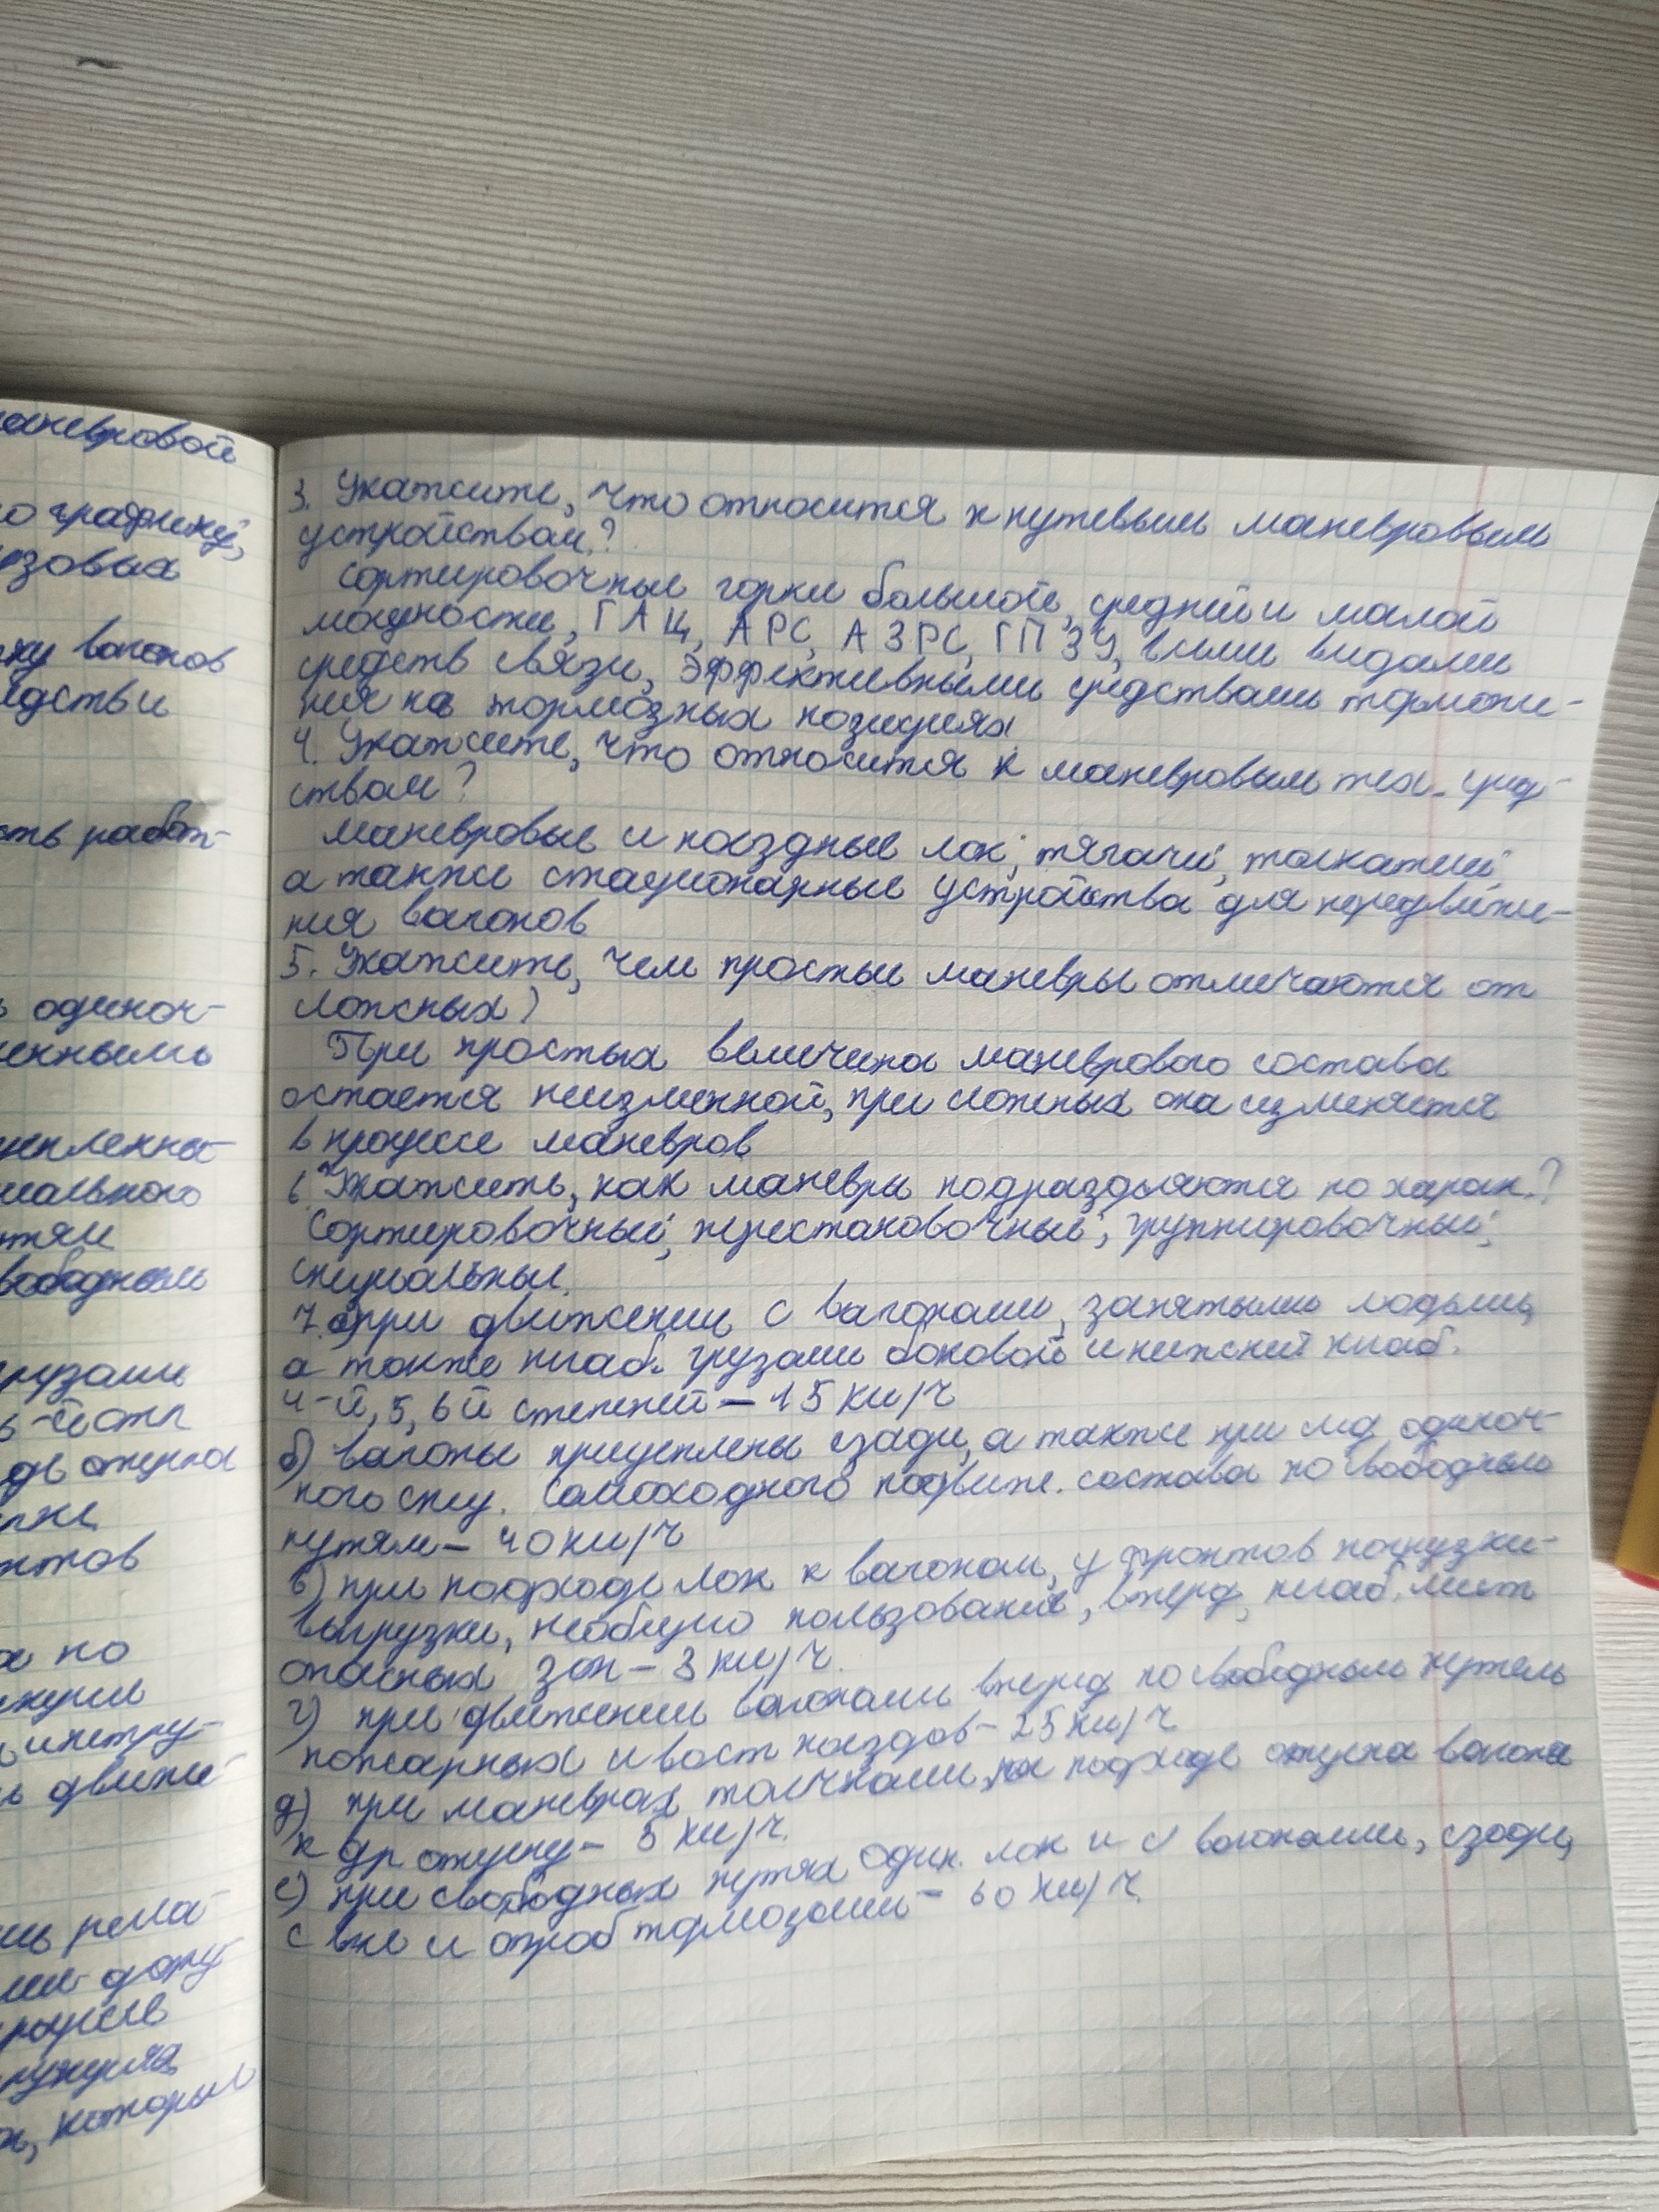 маневровой
графику,
зовых
ку вагонов
едств и
сть работ-
одиноч-
енными
цепленны-
иального
тям
вободным
грузами
6-й степ
де отцепа
нтов
по
движе
которые
3. Укажите, что относится к путевым маневровым
устройствам?
Сортировочные горки большой, средней и малой
мощности, ГАЦ, АРС, АЗРС, ГПЗУ, всеми видами
средств связи, эффективными средствами торможе-
ния на тормозных позициях
4. Укажите, что относится к маневровым тех. сред-
ствам?
маневровые и поездные лок, тягачи, толкатели
а также стационарные устройства для передвиже-
ния вагонов
5. Укажите, чем простые маневры отличаются от
сложных?
При простых величина маневрового состава
остается неизменной, при сложных она изменяется
в процессе маневров
6. Укажить, как маневры подразделяются по харак.?
Сортировочный, перестановочные, группировочный,
специальные.
7. а) при движении с вагонами, занятыми людьми,
а также негаб. грузами боковой и нижней негаб.
4-й, 5, 6й степеней – 15 км/ч
б) вагоны прицеплены сзади, а также при мд одиноч-
ного спец. самоходного подвиж. состава по свободным
путям – 40 км/ч
в) при подходе лок к вагонам, у фронтов погрузки-
выгрузки, необщего пользования, вперед, негаб. мест
опасных зон – 3 км/ч.
г) при движении вагонами вперед по свободным путям
пожарных и вост поездов – 25 км/ч
д) при маневрах толчками, на подходе отцепа вагона
к др отцепу – 5 км/ч.
е) при свободных путях один. лок и с вагонами, сзади,
с вкл и опроб тормозами – 60 км/ч